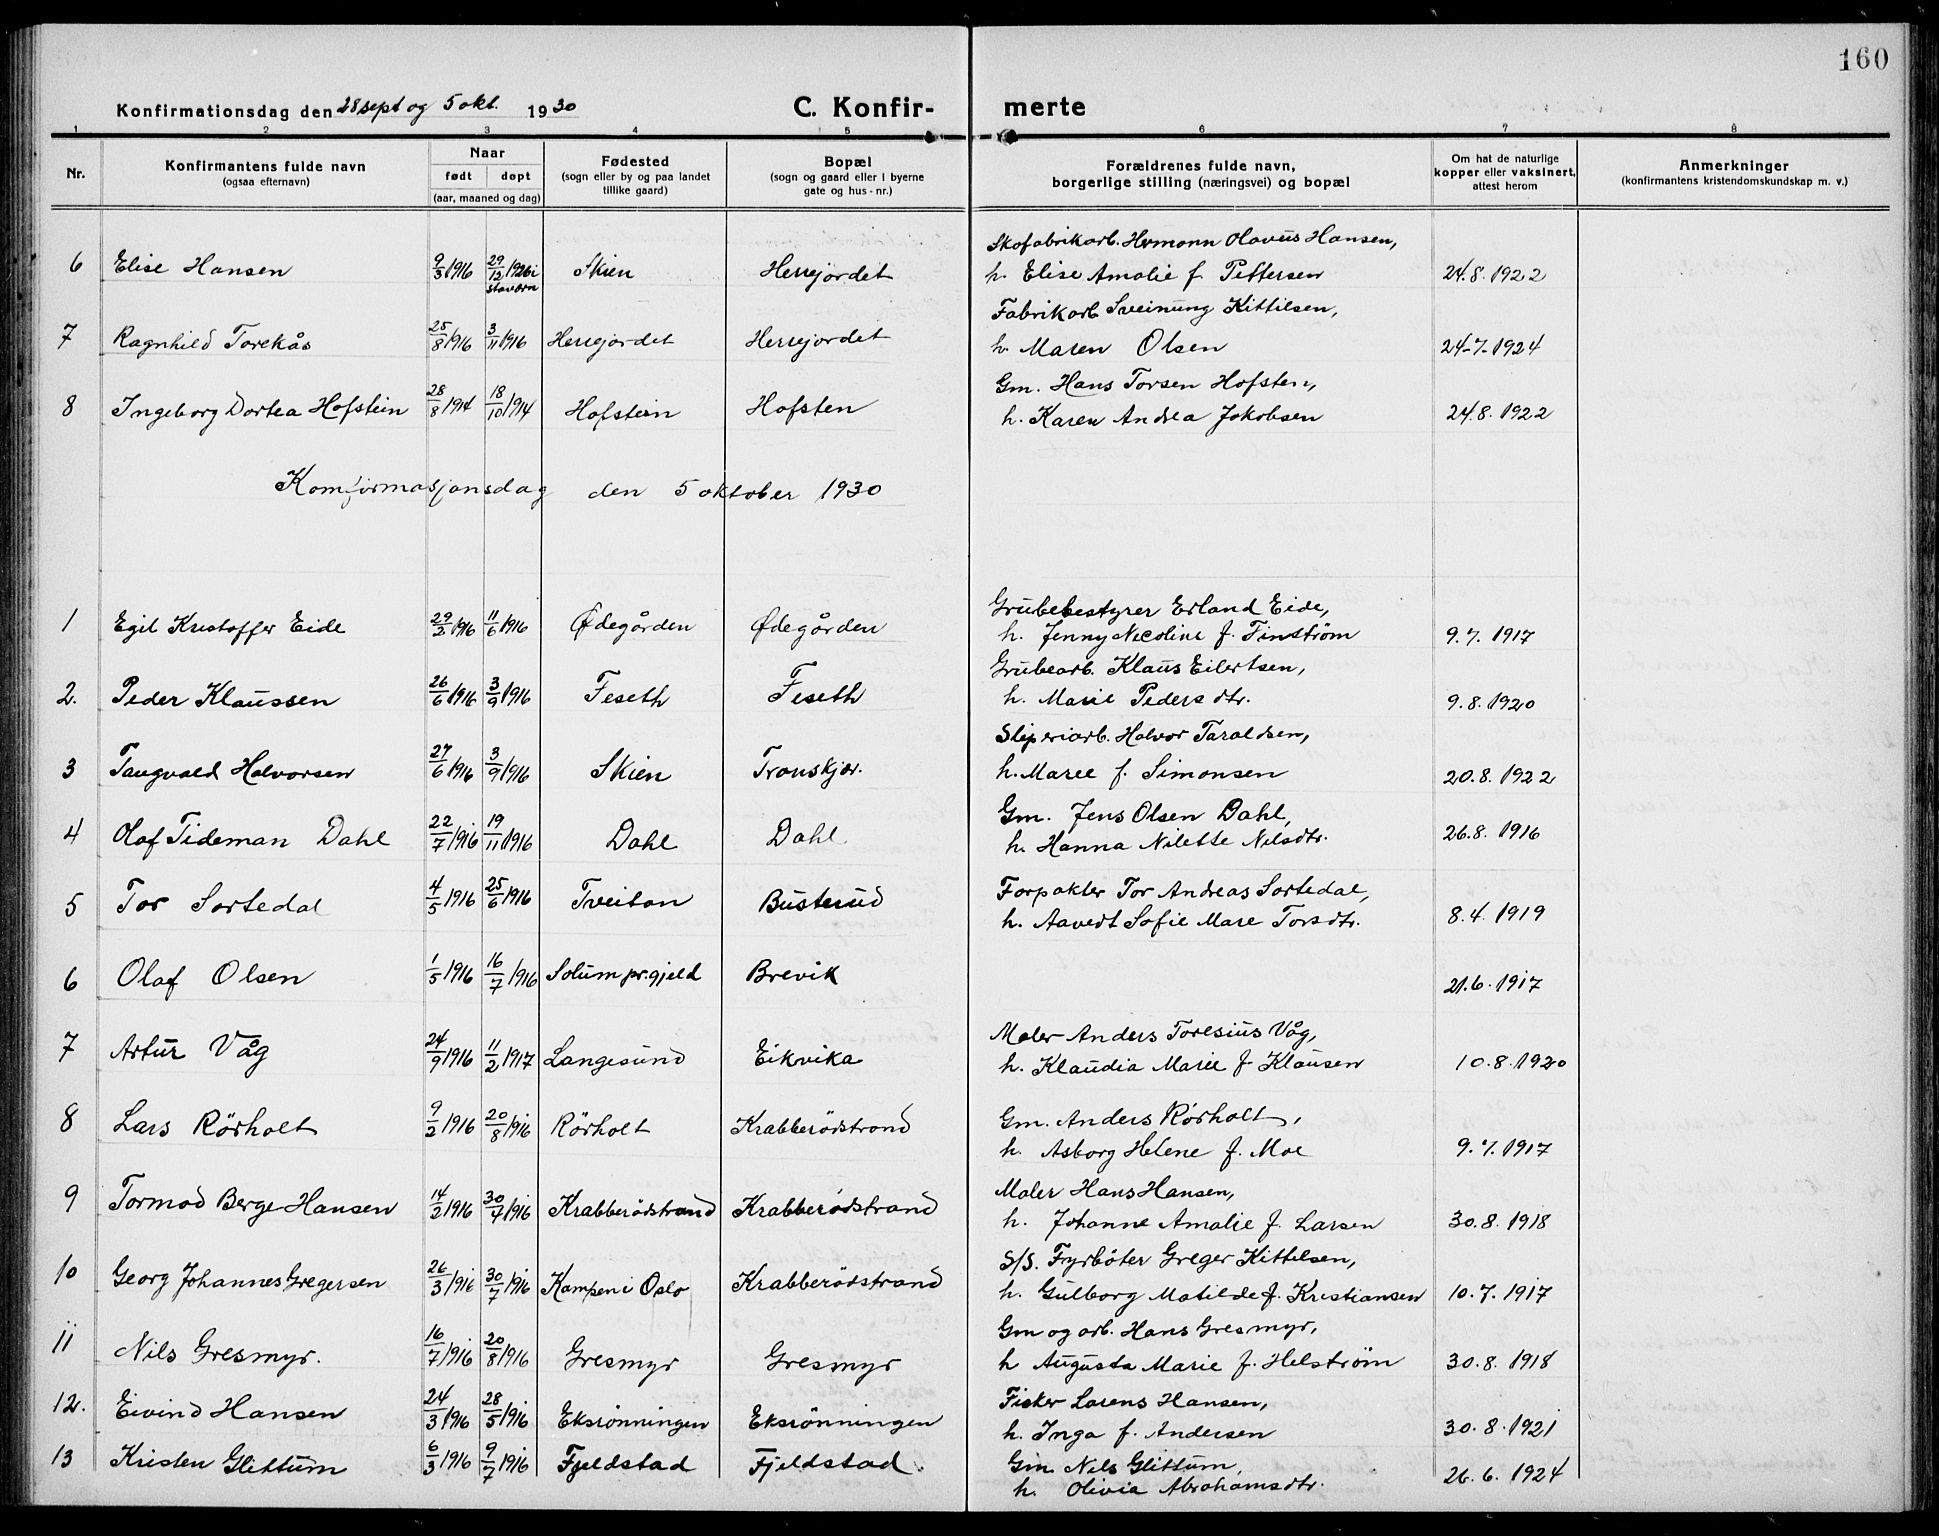 160
Konfirmationsdag den 28 sept og 5 okt. 1930 C. Konfir- merte
1 2 3 4 5 6 7 8
Nr. Konfirmantens fulde navn (ogsaa efternavn) Naar født døpt (aar, maaned og dag) Fødested (sogn eller by og paa landet tillike gaard) Bopæl (sogn og gaard eller i byerne gate og hus-nr.) Forældrenes fulde navn, borgerlige stilling (næringsvei) og bopæl Om hat de naturlige kopper eller vaksinert, attest herom Anmerkninger (konfirmantens kristendomskundskap m. v.)
Skofabrikarb. Hermann Olavus Hansen,
6 Elise Hansen 9/3 1916 29/12 1926 i Stavern Skien Herrejordet h. Elise Amalie f. Pettersen 24.8.1922
Fabrikarb. Sveinung Kittilsen,
7 Ragnhild Torekås 25/8 1916 3/11 1916 Herrejordet Herrejordet h. Maren Olsen 24-7-1924
Gm. Hans Torsen Hofsten,
8 Ingeborg Dortea Hofstein 28/8 1914 18/10 1914 Hofstein Hofsten h. Karen Andrea Jakobsen 24.8.1922
Komfirmasjonsdag den 5 oktober 1930
Grubebestyrer Erland Eide,
1 Egil Kristoffer Eide 29/2 1916 11/6 1916 Ødegården Ødegården h. Jenny Nicoline f. Finstrøm 9.7.1917
Grubearb. Klaus Eilertsen,
2. Peder Klaussen 26/6 1916 3/9 1916 Feseth Feseth h. Marie Pedersdtr. 9.8.1920
Sliperiarb. Halvor Taraldsen,
3 Taugvald Halvorsen 27/6 1916 3/9 1916 Skien Tronskjær. h. Marie f. Simonsen 20.8.1922
Gm. Jens Olsen Dahl,
4 Olaf Tideman Dahl 22/7 1916 19/11 1916 Dahl Dahl h. Hanna Nilette Nilsdtr. 26.8.1916
Forpakter Tor Andreas Sortedal,
5 Tor Sortedal 4/5 1916 25/6 1916 Tveitan Busterud h. Aavedt Sofie Mare Torsdtr. 8.4.1919
6 Olaf Olsen 1/5 1916 16/7 1916 Solum pr.gjeld Brevik 21.6.1917
Maler Anders Toresius Våg,
7 Artur Våg 24/9 1916 11/2 1917 Langesund Eikvika h. Klaudia Marie f. Klausen 10.8.1920
Gm. Anders Rörholt,
8 Lars Rörholt 9/2 1916 20/8 1916 Rörholt Krabberödstrand h. Asborg Helene f. Moe 9.7.1917
Maler Hans Hansen,
9 Tormod Berge Hansen 14/2 1916 30/7 1916 Krabberödstrand Krabberödstrand h. Johanne Amalie f. Larsen 30.8.1918
S/S. Fyrböter Greger Kittelsen,
10 Georg Johannes Gregersen 26/3 1916 30/7 1916 Kampen i Oslo Krabberödstrand h. Gulborg Matilde f. Kristiansen 10.7.1917
Gm og arb. Hans Gresmyr,
11 Nils Gresmyr. 16/7 1916 20/8 1916 Gresmyr Gresmyr h Augusta Marie f. Helstrøm 30.8.1918
Fisker Lorens Hansen,
12. Eivind Hansen 24/3 1916 28/5 1916 Eksrönningen Eksrönningen h. Inga f. Andersen 30.8.1921
Gm. Nils Glittum,
13 Kristen Glittum 6/3 1916 9/7 1916 Fjeldstad Fjeldstad h. Olivia Abrahamsdtr. 26.6.1924